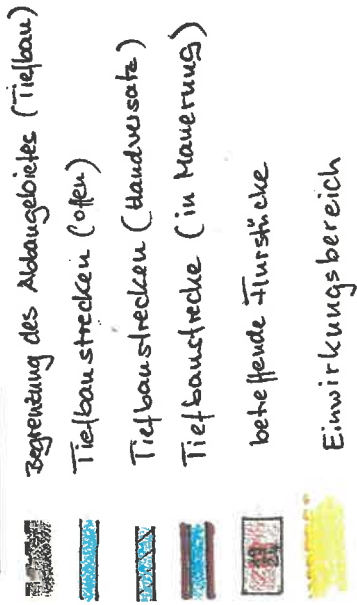 Begrenzung des Abbaugebietes (Tiefbau)
Tiefbaustrecken (offen)
Tiefbaustrecken (Handversatz)
Tiefbaustrecke (in Mauerung)
betreffende Flurstücke
Einwirkungsbereich